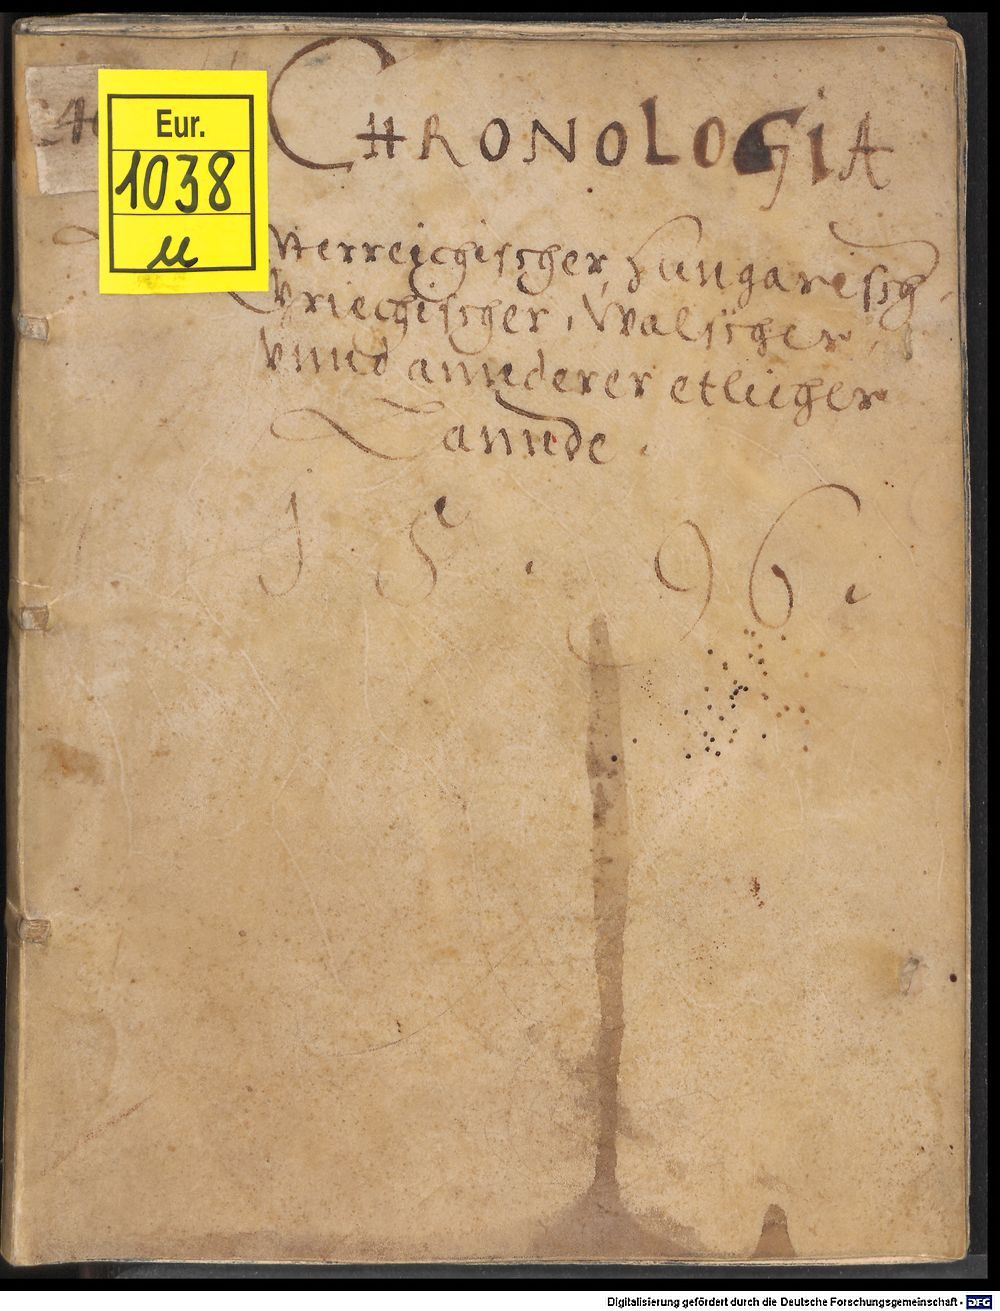 Eur.
1038
u
CHRONOLOGIA
sterreichischer, Hungarisch
Griechischer, Walscher,
vnnd annederer etlicher
Lannde.
15.96.
Digitalisierung gefördert durch die Deutsche Forschungsgemeinschaft - DFG